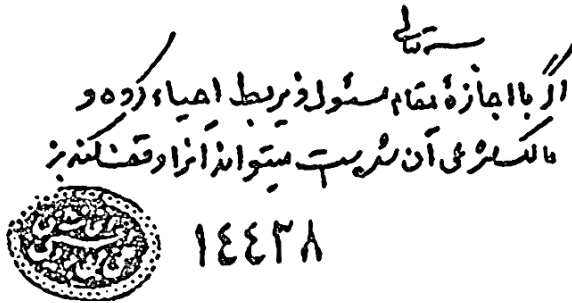 بسمه تعالی
اگر با اجازهٔ مقام مسئول ذیربط احیاء کرده و
مالک شرعی آن شده است میتواند آنرا وقف کند
۱٤٤٣٨